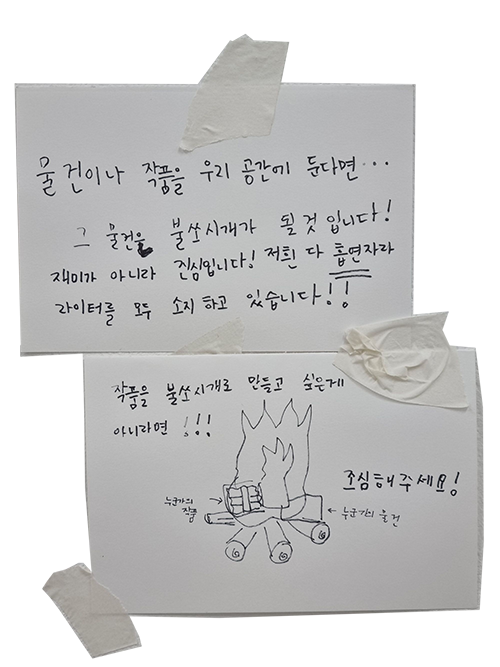 물건이나 작품을 우리 공간에 둔다면...
그 물건은 불쏘시개가 될것입니다!
재미가 아니라 진심입니다! 저흰 다 흡연자라
라이터를 모두 소지하고 있습니다!!
작품을 불쏘시개로 만들고 싶은게
아니라면 !!!
조심해주세요!
누군가의
작품
누군가의 물건